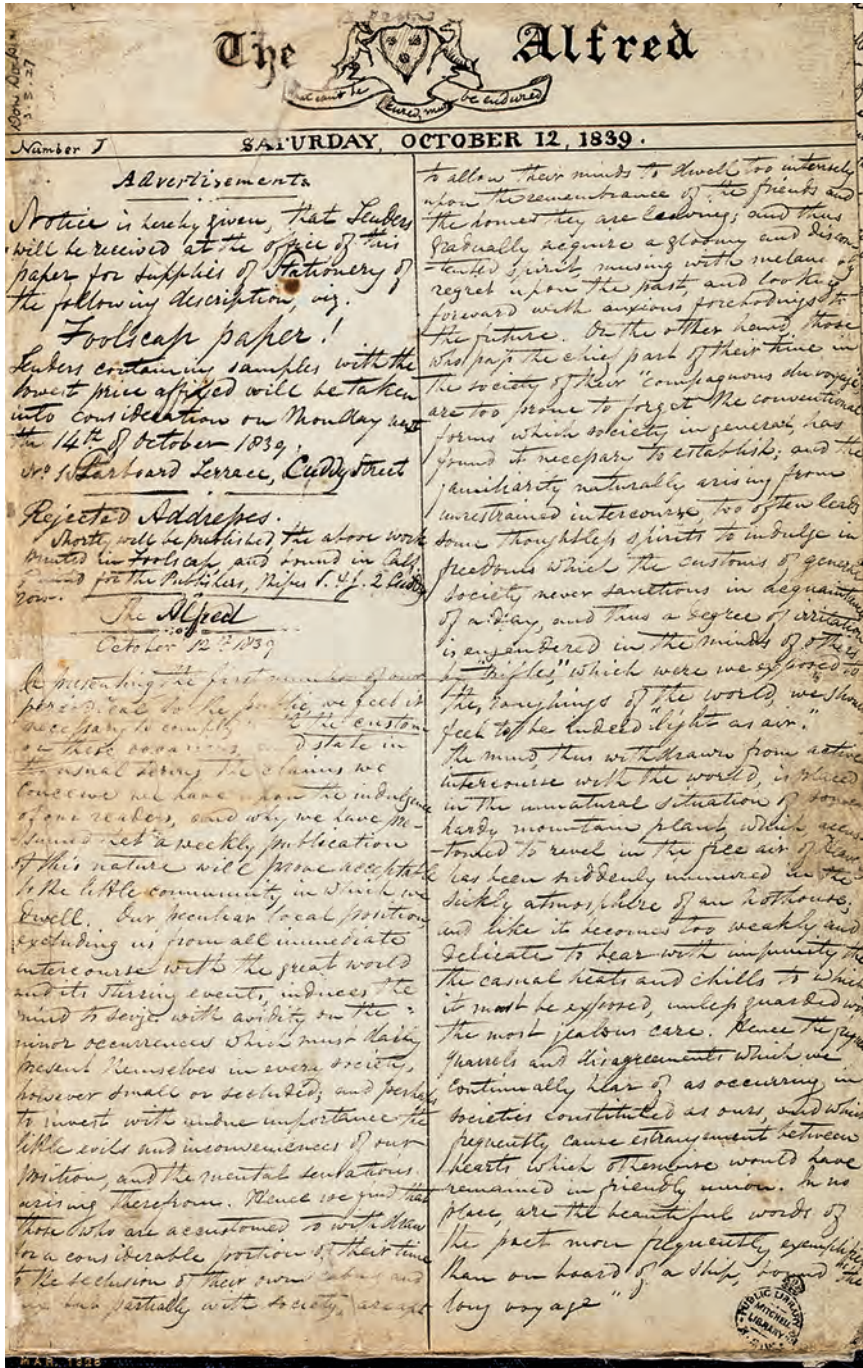 The Alfred
What can't be cured, must be endured
Number 1
SATURDAY, OCTOBER 12, 1839.
Advertisements
Notice is hereby given, that Tenders
will be received at the office of this
paper for supplies of Stationery of
the following description, viz.
Foolscap paper!
Tenders containing samples with the
lowest price affixed will be taken
into consideration on Monday next
the 14th of October 1839.
No 1 Starboard Terrace, Cuddy Street
Rejected Addresses.
Shortly will be published the above work
printed in Foolscap, and bound in Calf.
for the Publishers, 2 Cuddy
row.
The Alfred
October 12th 1839
In presenting the first number of our
periodical to the public, we feel it
necessary to comply with the custom
on these occasions, and state in
the usual terms the claims we
conceive we have upon the indulgence
of our readers, and why we have pre-
sumed that a weekly publication
of this nature will prove acceptable
to the little community in which we
dwell. Our peculiar local position,
excluding us from all immediate
intercourse with the great world
and its stirring events, induces the
mind to seize with avidity on the
minor occurrences which must daily
present themselves in every society,
however small or secluded; and perhaps
to invest with undue importance the
little evils and inconveniences of our
position, and the mental sensations
arising therefrom. Hence we find that
those who are accustomed to withdraw
for a considerable portion of their time
to the seclusion of their own cabins and
mix but partially with society, are apt
to allow their minds to dwell too intensely
upon the remembrance of the friends and
the homes they are leaving; and thus
gradually acquire a gloomy and discon
-tented spirit, musing with melanc
regret upon the past, and looking
forward with anxious forebodings to
the future. On the other hand, those
who pass the chief part of their time in
the society of their "compagnons du voyage,"
are too prone to forget the conventional
forms which society in general, has
found it necessary to establish; and the
familiarity naturally arising from
unrestrained intercourse, too often leads
some thoughtless spirits to indulge in
freedoms which the customs of general
society never sanctions in acquaintance
of a day, and thus a degree of irritation
is engendered in the minds of others
by "trifles," which were we exposed to
the roughings of the world, we should
feel to be indeed "light as air."
The mind thus withdrawn from active
intercourse with the world, is placed
in the unnatural situation of some
hardy mountain plant, which accus
-tomed to revel in the free air of heaven
has been suddenly immured in the
sickly atmosphere of an hothouse;
and like it becomes too weakly and
delicate to bear with impunity the
the casual heats and chills to which
it must be exposed, unless guarded with
the most jealous care. Hence the
quarrels and disagreements which we
continually hear of as occurring in
societies constituted as ours, and which
frequently cause estrangement between
hearts which otherwise would have
remained in friendly union. In no
place, are the beautiful words of
the poet more frequently exemplified
than on board of a ship, bound
long voyage"
PUBLIC LIBRARY
MITCHELL
LIBRARY
N.S.W.